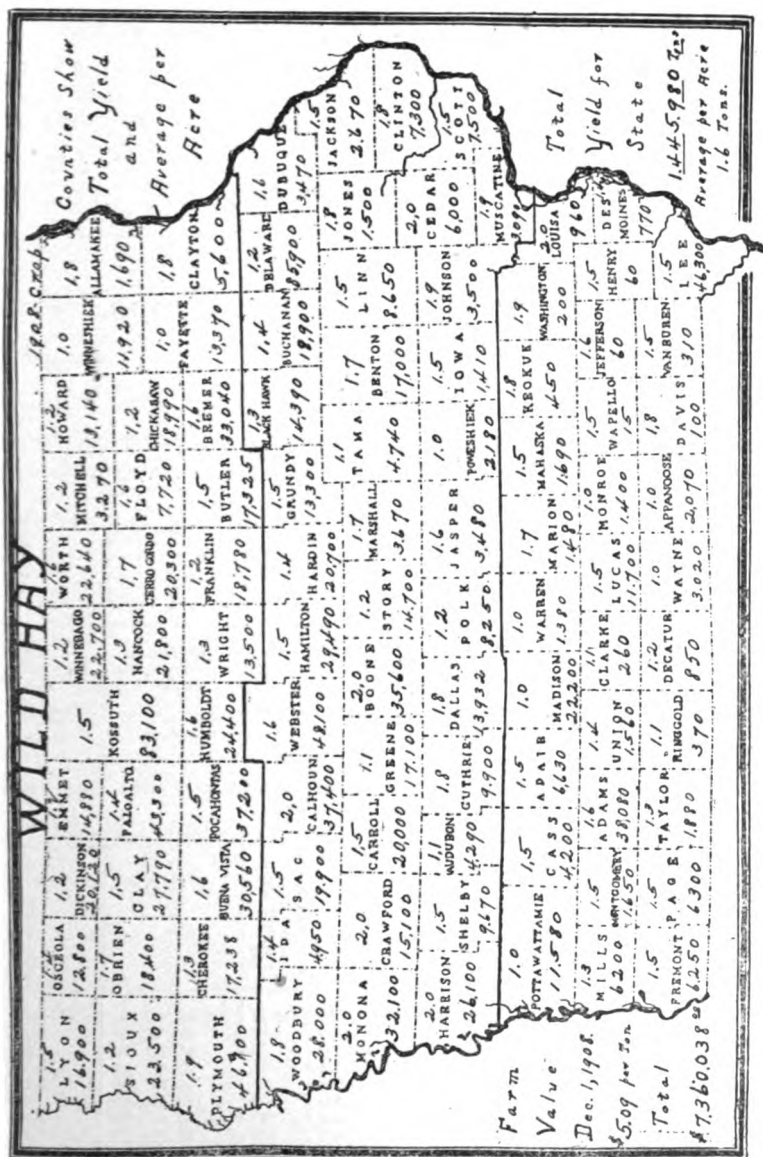 WILD HAY
1908 Crop.
Counties Show
Total Yield
and
Average per
Acre
1.5
LYON
16,900
1.4
OSCEOLA
12,800
1.2
DICKINSON
EMMET
14,880
1.5
KOSSUTH
83,100
1.2
WINNEBAGO
22,700
1.6
WORTH
22,640
1.2
MITCHELL
3,270
1.2
HOWARD
13,140
1.0
WINNESHIEK
11,920
1.8
ALLAMAKEE
1,690
1.2
SIOUX
23,500
1.7
OBRIEN
18,400
1.5
CLAY
27,790
1.4
PALOALTO
43,300
1.3
HANCOCK
21,800
1.7
CERRO GORDO
20,300
1.6
FLOYD
7,720
1.2
CHICKASAW
18,990
1.0
FAYETTE
13,370
1.8
CLAYTON
5,600
1.9
PLYMOUTH
46,900
1.3
CHEROKEE
17,238
1.6
BUENA VISTA
30,560
1.5
POCAHONTAS
37,200
1.6
HUMBOLDT
24,400
1.3
WRIGHT
13,500
1.2
FRANKLIN
18,780
1.5
BUTLER
17,325
1.6
BREMER
33,040
1.8
WOODBURY
28,000
1.4
IDA
4,950
1.5
SAC
19,900
2,0
CALHOUN
37,400
1.6
WEBSTER
48,100
1.5
HAMILTON
29,490
1.4
HARDIN
20,700
1.5
GRUNDY
13,300
1.3
BLACK HAWK
14,390
1.4
BUCHANAN
18,900
1.2
DELAWARE
85,900
1.6
DUBUQUE
3,470
2.0
MONONA
32,100
2,0
CRAWFORD
15,100
1,5
CARROLL
20,000
1.1
GREENE
17,100
2,0
BOONE
35,600
1.2
STORY
14,700
1.7
MARSHALL
3,670
1.1
TAMA
4,740
1.7
BENTON
17,000
1.5
LINN
8,650
1.8
JONES
1,500
1.5
JACKSON
2,670
1.8
CLINTON
7,300
2.0
HARRISON
26,100
1.5
SHELBY
9,670
1.1
AUDUBON
4,290
1.8
GUTHRIE
9,900
1.8
DALLAS
13,932
1.2
POLK
8,250
1.6
JASPER
3,480
1.0
POWESHIEK
2,180
1.5
IOWA
1,410
1.9
JOHNSON
3,500
2,0
CEDAR
6,000
1.5
SCOTT
7,500
1.9
MUSCATINE
1.0
POTTAWATTAMIE
11,580
1,5
CASS
4,200
1.5
ADAIR
6,630
1.0
MADISON
22,200
1.0
WARREN
1,380
1.7
MARION
1,480
1.5
MAHASKA
1,690
1.8
KEOKUK
450
1.9
WASHINGTON
200
2.0
LOUISA
960
1.3
MILLS
6200
1.5
MONTGOMERY
1,650
1.6
ADAMS
38,080
1.4
UNION
1,560
1.1
CLARKE
260
1.5
LUCAS
11,700
1.0
MONROE
1,400
1.5
WAPELLO
1.5
1.6
JEFFERSON
60
1.5
HENRY
60
DES
MOINES
770
1.5
FREMONT
6250
1.5
PAGE
6300
1.3
TAYLOR
1,880
1.1
RINGGOLD
370
1.2
DECATUR
850
1.0
WAYNE
3,020
1.0
APPANOOSE
2,070
1.8
DAVIS
100
1.5
VAN BUREN
310
1.5
LEE
46,300
Farm
Value
Dec. 1, 1908.
$5.09 per Ton
Total
$7,360,038
Total
Yield for
State
1,445,980 Tons
Average per Acre
1.6 Tons.